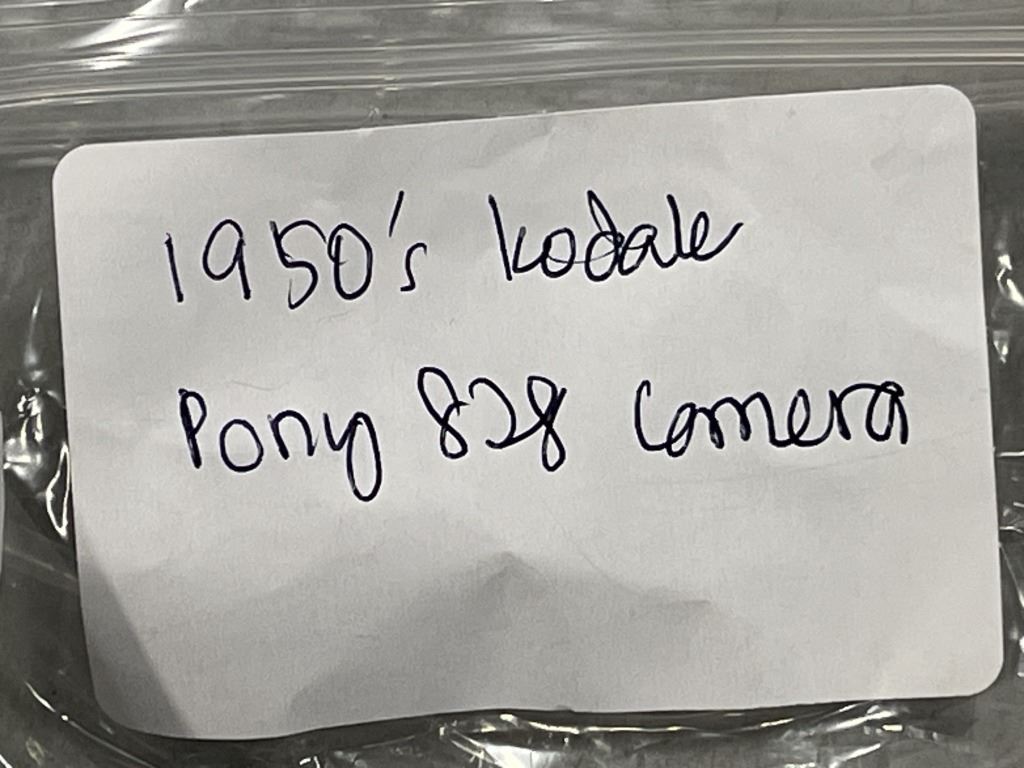 1950's Kodak
Pony 828 Camera